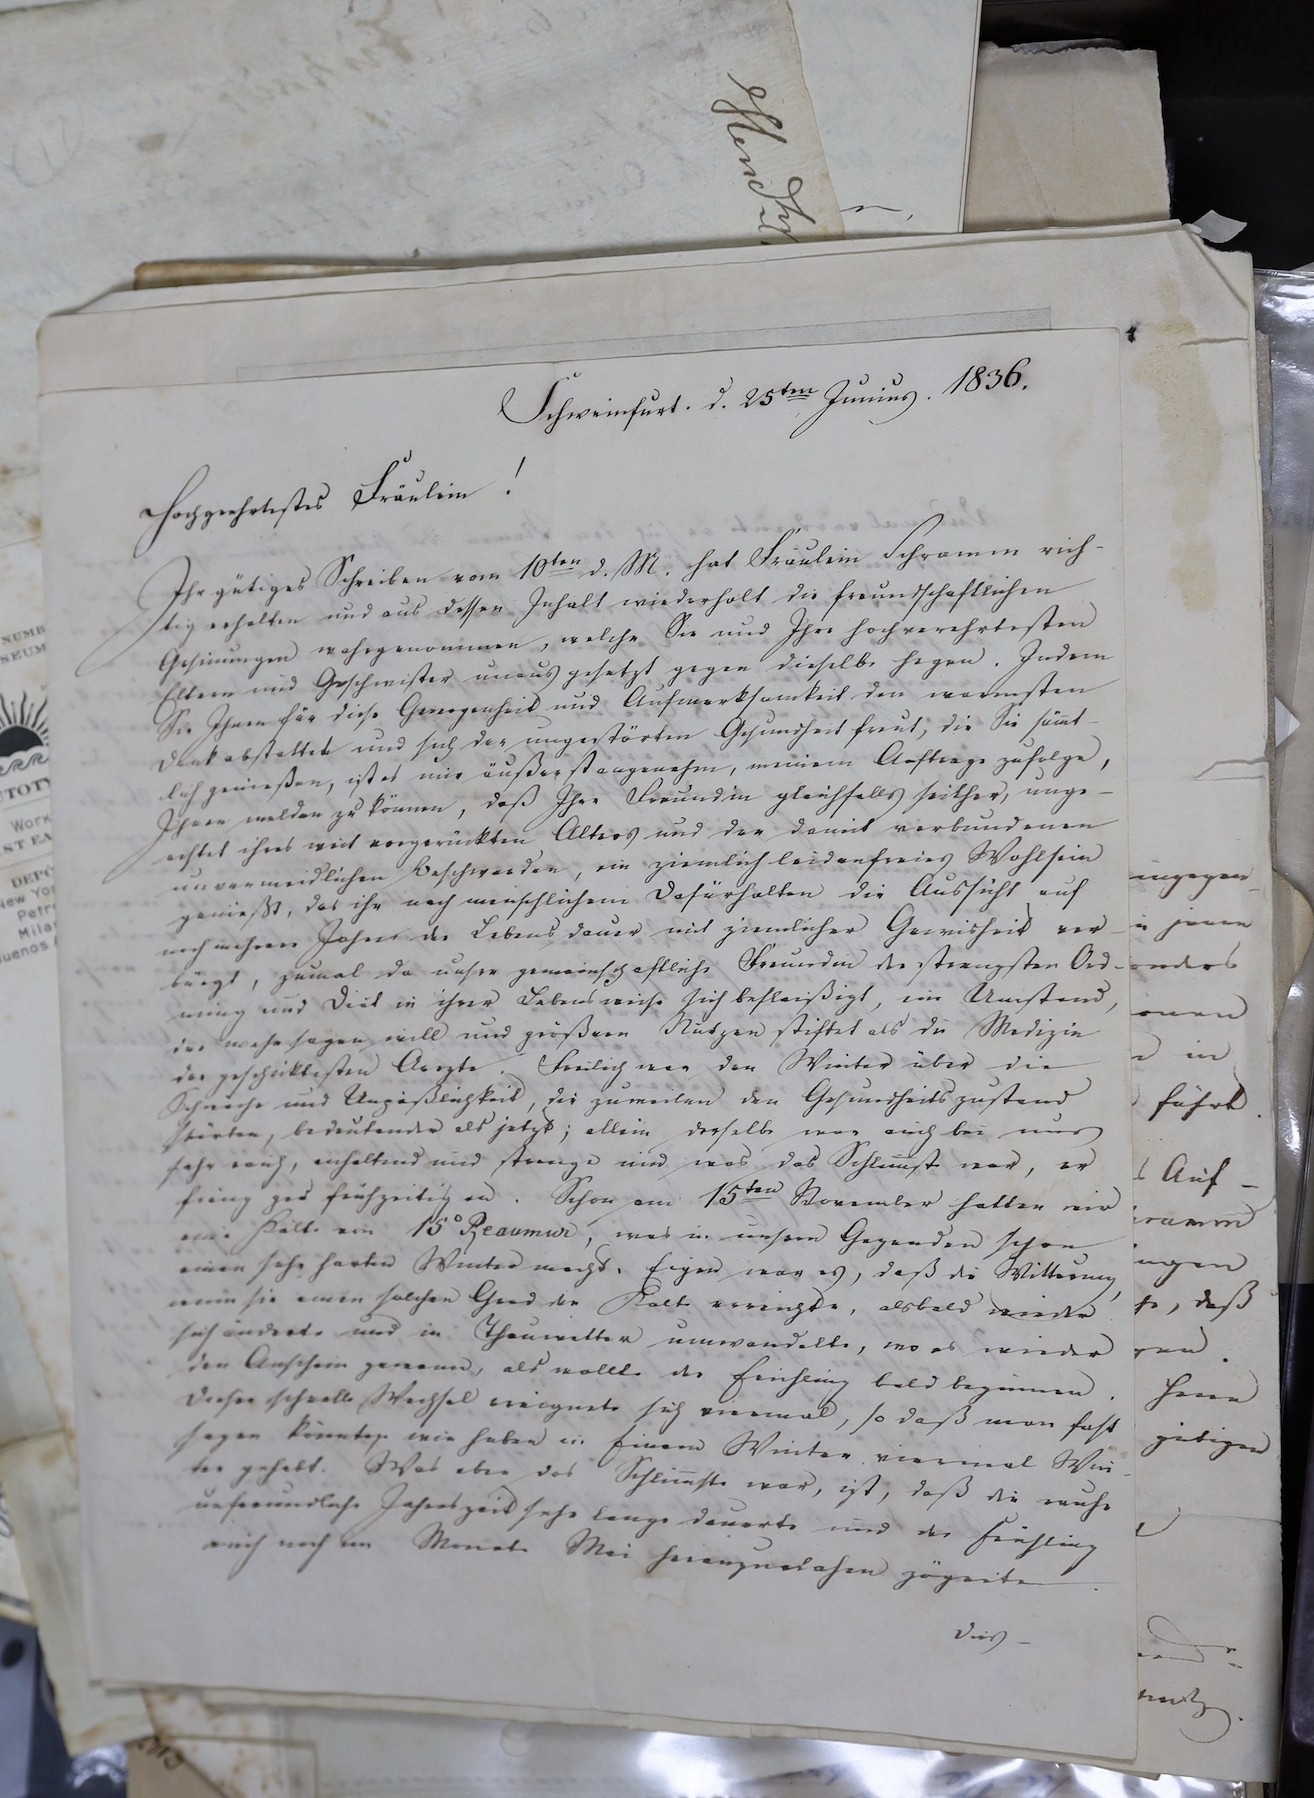 Schweinfurt. d. 25ten Junius. 1836.
Hochgeehrtestes Fräulein!
Ihr gütiges Schreiben vom 10ten d. M. hat Fräulein Schramm rich-
tig erhalten und aus dessen Inhalt wiederholt die freundschaftlichen
Gesinungen wahrgenommen, welche Sie und Ihre hochverehrtesten
Eltern und Geschwister unausgesetzt gegen dieselbe hegen. Indem
Sie Ihnen für diese Gewogenheit und Aufmerksamkeit den wärmsten
Dank abstattet und sich der ungestörten Gesundheit freut, die Sie sämt-
lich genießen, ist es mir äußerst angenehm, meinem Auftrage zufolge,
Ihnen melden zu können, daß Ihre Freundin gleichfalls seither, unge-
achtet ihres weit vorgerückten Alters und der damit verbundenen
unvermeidlichen Beschwerden, ein ziemlich leidenfreies Wohlsein
genießt, das ihr nach menschlichem Dafürhalten die Aussicht auf
noch mehrere Jahre der Lebensdauer mit ziemlicher Gewisheit ver-
bürgt, zumal da unsere gemeinschaftliche Freundin der strengsten Ord-
nung und Diät in ihrer Lebensweise sich befleißigt, ein Umstand,
der mehr sagen will und größern Nutzen stiftet als die Medizin
der geschicktesten Aerzte. Freilich war den Winter über die
Schwäche und Unpäßlichkeit, die zuweilen den Gesundheitszustand
störten, bedeutender als jetzt; allein derselbe war auch bei uns
sehr rauh, anhaltend und strenge und was das Schlimste war, er
fieng gar frühzeitig an. Schon am 15ten November hatten wir
eine Kälte von 15° Reaumur, was in unsern Gegenden schon
einen sehr harten Winter macht. Eigen war es, daß die Witterung,
wenn sie einen solchen Grad der Kälte erreichte, alsbald wieder
sich änderte und in Thauwetter umwandelte, wo es wieder
den Anschein gewann, als wollte der Frühling bald beginnen.
Dieser schnelle Wechsel ereignete sich viermal, so daß man fast
sagen könnte, wir haben in Einem Winter viermal Win-
ter gehabt. Was aber das Schlimste war, ist, daß die rauhe
unfreundliche Jahreszeit sehr lange dauerte und der Frühling
auch noch im Monate Mai heranzunahen zögerte.
Dies-
führt.
Auf-
daß
Herrn
gütigen